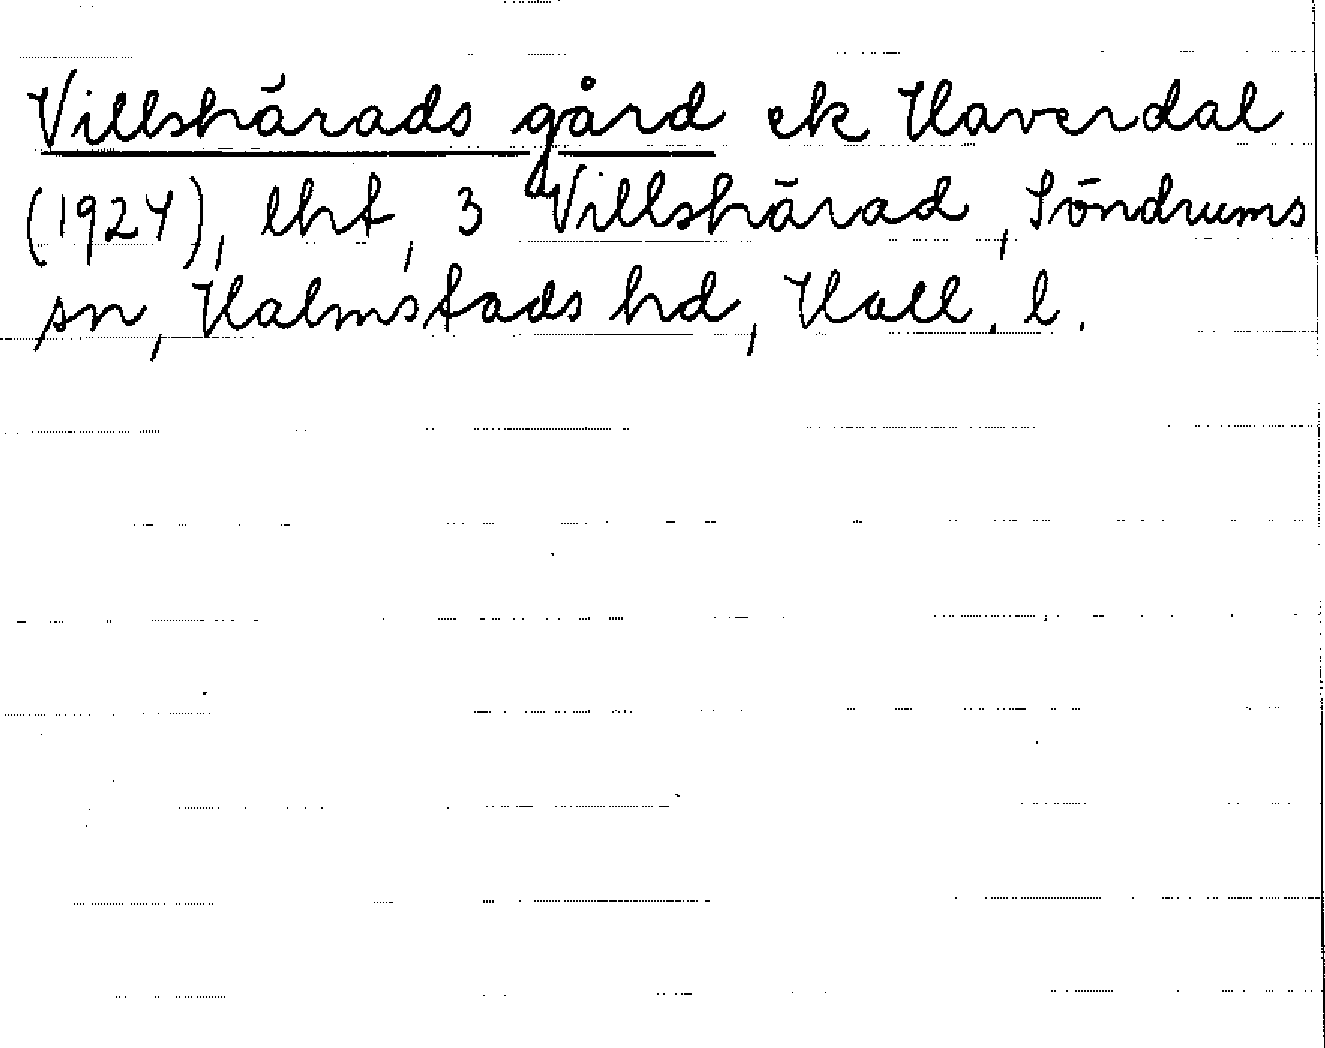 Villshärads gård ek Haverdal
(1924), lht, 3 Villshärad, Söndrums
sn, Halmstads hd, Hall. l.